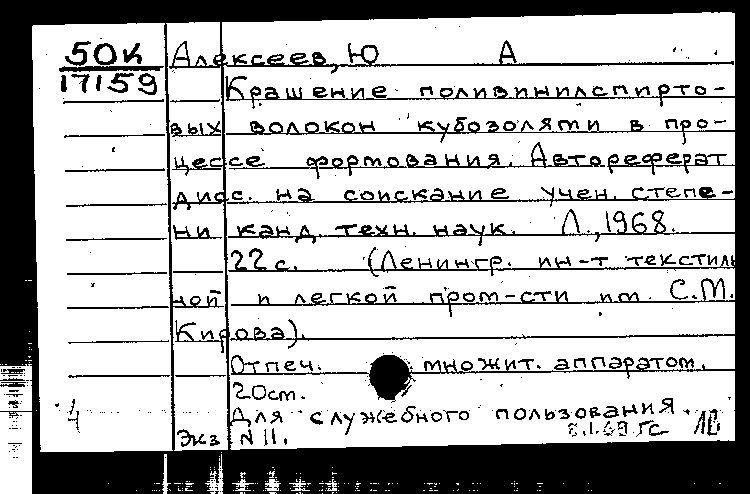 50К Алексеев, Ю А
17159 Крашение поливинилспирто-
вых волокон кубозолями в про-
цессе формования. Автореферат
дисс. на соискание учен. степе-
ни канд. техн. наук. Л., 1968.
22 с. (Ленингр. ин-т текстиль
ной и легкой пром-сти им. С.М.
Кирова).
Отпеч. множит. аппаратом.
20 см.
Для служебного пользования.
Экз N 11.